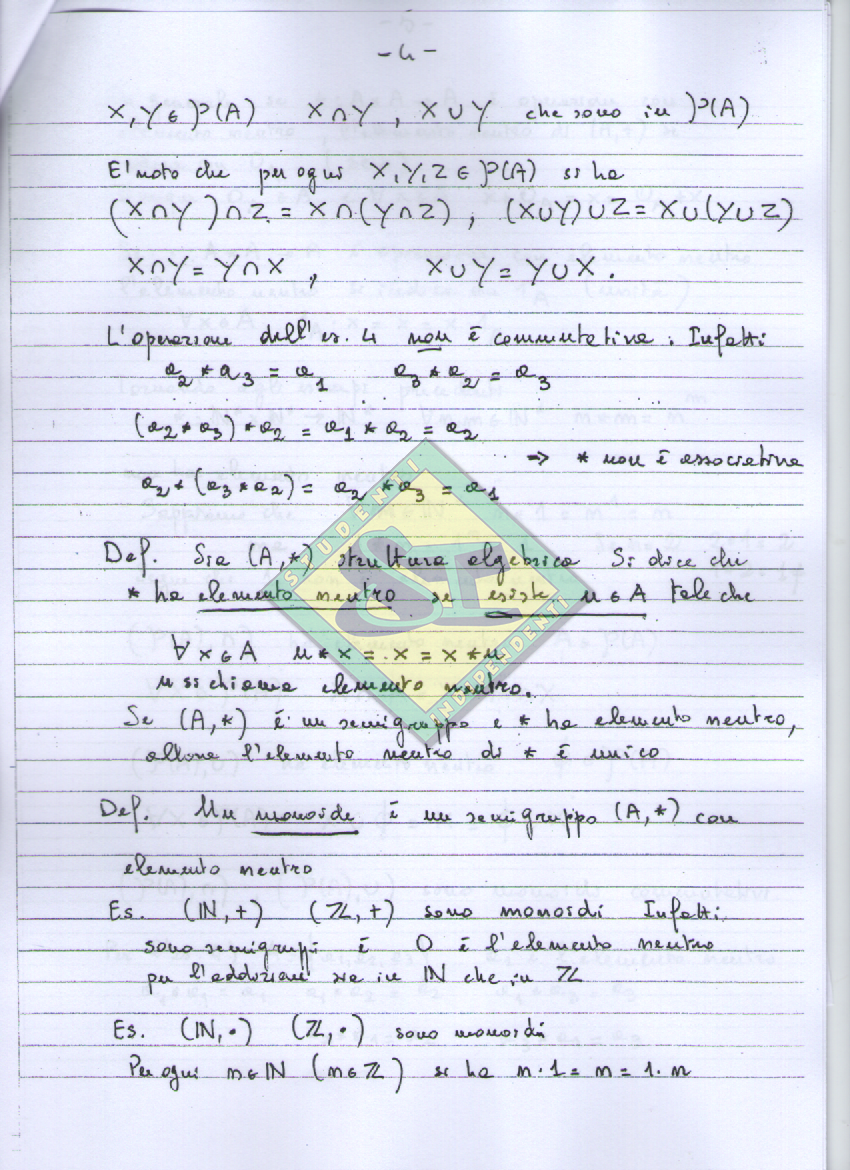 -4-
X, Y ∈ P(A) X∩Y , X∪Y che sono in P(A)
E' noto che per ogni X,Y,Z ∈ P(A) si ha
(X∩Y)∩Z = X∩(Y∩Z) , (X∪Y)∪Z = X∪(Y∪Z)
X∩Y = Y∩X , X∪Y = Y∪X .
L'operazione dell'es. 4 non è commutativa. Infatti
a₂ * a₃ = a₁ a₃ * a₂ = a₃
(a₂ * a₃) * a₂ = a₁ * a₂ = a₂
⇒ * non è associativa
a₂ * (a₃ * a₂) = a₂ * a₃ = a₁
STUDENTI
SI
INDIPENDENTI
Def. Sia (A,*) struttura algebrica Si dice che
* ha elemento neutro se esiste u ∈ A tale che
∀ x ∈ A u * x = x = x * u
u si chiama elemento neutro.
Se (A,*) è un semigruppo e * ha elemento neutro,
allora l'elemento neutro di * è unico
Def. Un monoide è un semigruppo (A,*) con
elemento neutro
Es. (ℕ,+) (ℤ,+) sono monoidi Infatti
sono semigruppi è 0 è l'elemento neutro
per l'addizione sia in ℕ che in ℤ
Es. (ℕ,·) (ℤ,·) sono monoidi
Per ogni n ∈ ℕ (n ∈ ℤ) si ha n·1 = n = 1·n